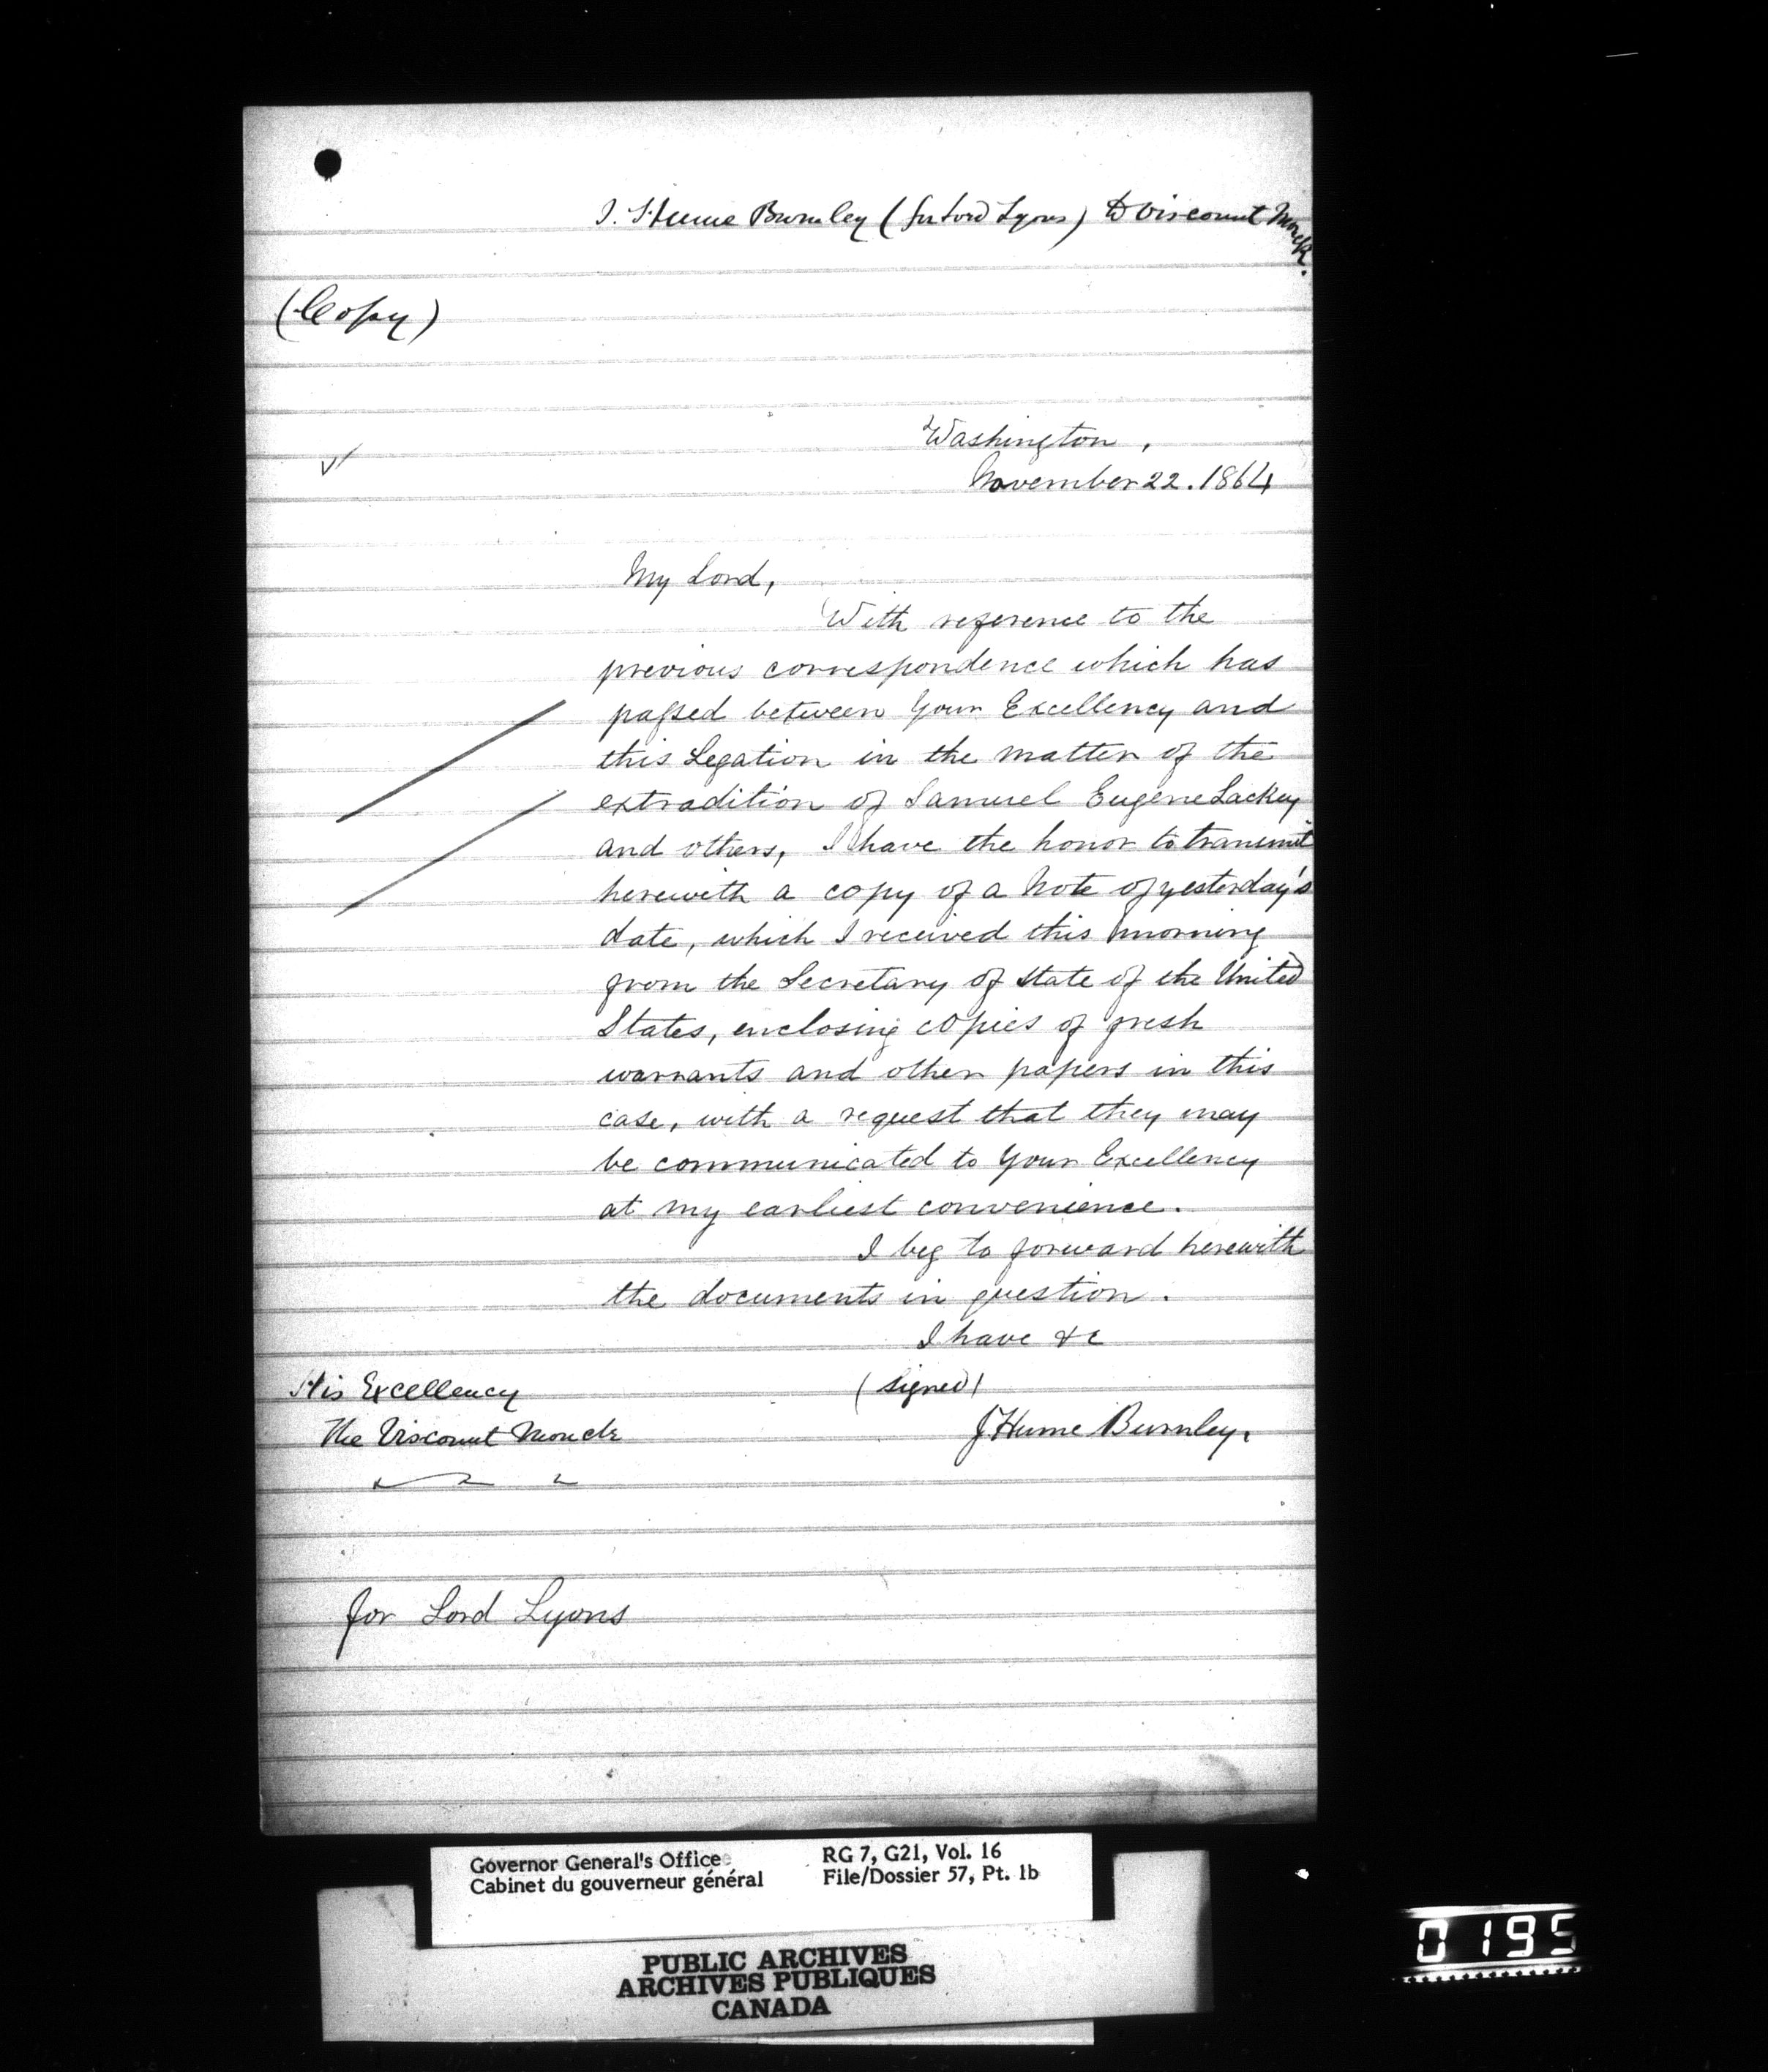 J. Hume Burnley (for Lord Lyons) to Viscount Monck.
(Copy)
Washington,
November 22. 1864
My Lord,
With reference to the
previous correspondence which has
passed between Your Excellency and
this Legation in the matter of the
extradition of Samuel Eugene Lackey
and others, I have the honor to transmit
herewith a copy of a Note of yesterday's
date, which I received this morning
from the Secretary of State of the United
States, enclosing copies of fresh
warrants and other papers in this
case, with a request that they may
be communicated to Your Excellency
at my earliest convenience.
I beg to forward herewith
the documents in question.
I have &c
(signed)
J Hume Burnley.
His Excellency
The Viscount Monck
for Lord Lyons
Governor General's Office
Cabinet du gouverneur général
RG 7, G21, Vol. 16
File/Dossier 57, Pt. 1b
PUBLIC ARCHIVES
ARCHIVES PUBLIQUES
CANADA
0195